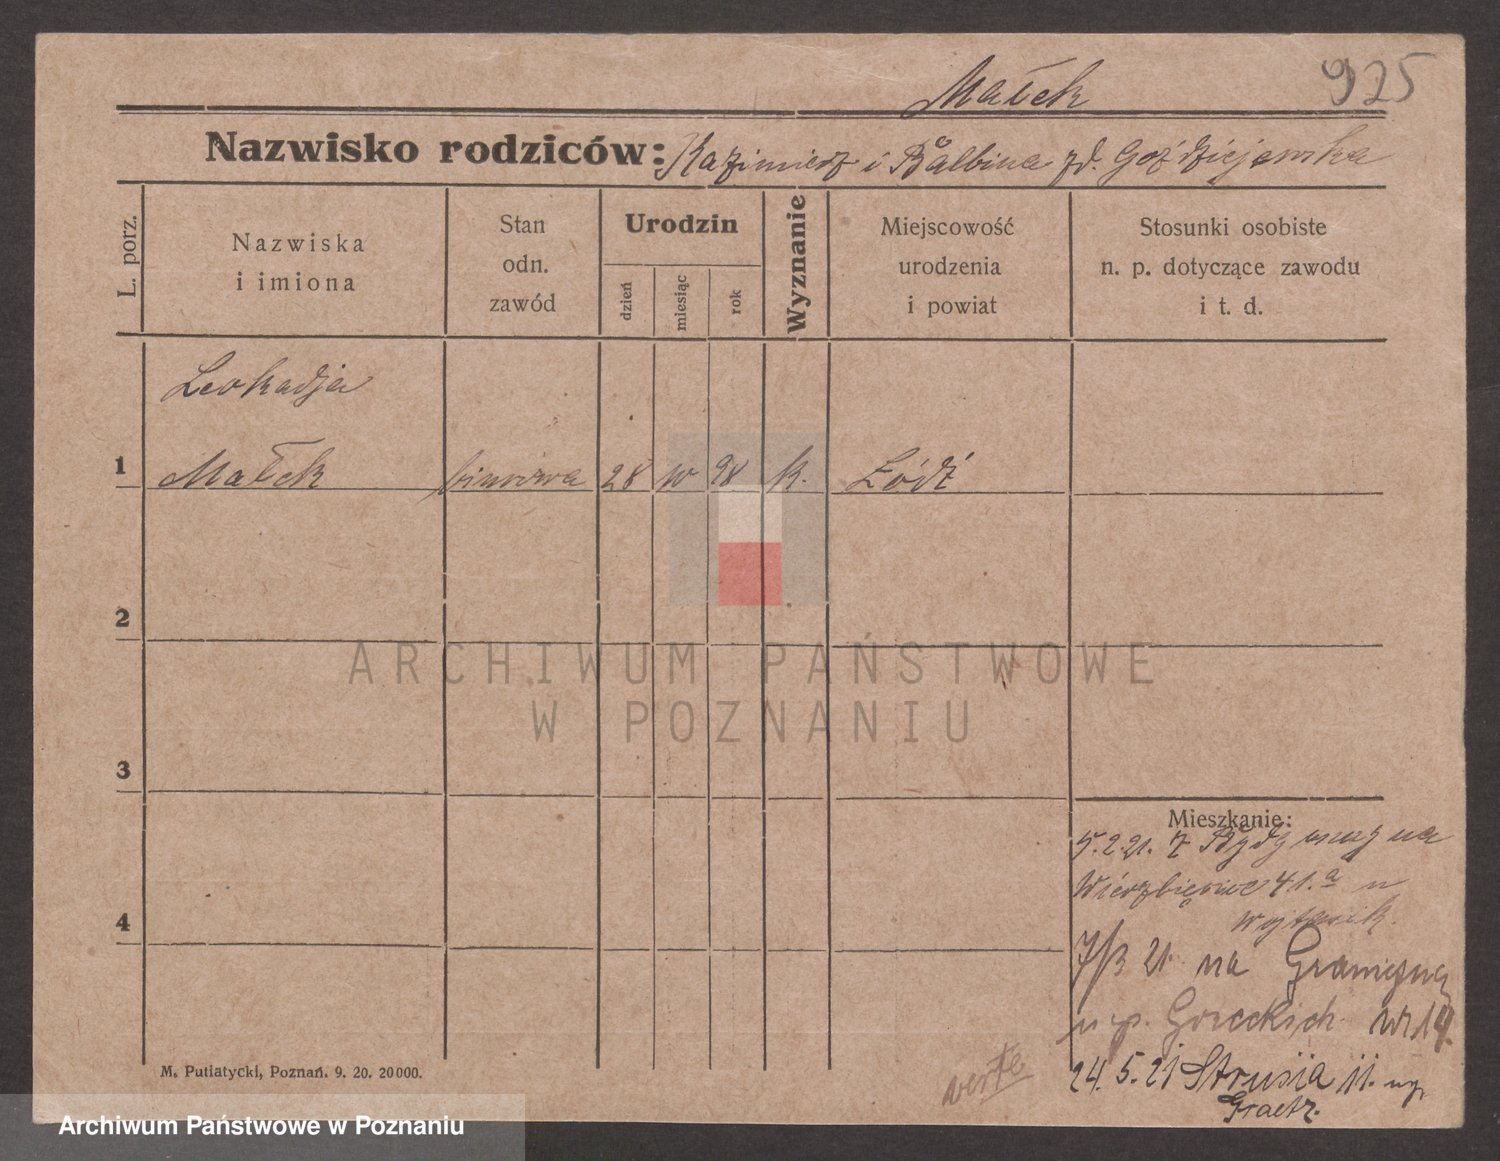 925
Małek
Nazwisko rodziców: Kazimierz i Balbina zd. Goździejewska
L. porz.
Nazwiska
i imiona
Stan
odn.
zawód
Urodzin
dzień
miesiąc
rok
Wyznanie
Miejscowość
urodzenia
i powiat
Stosunki osobiste
n. p. dotyczące zawodu
i t. d.
Leokadja
1 Małek biurowa 28 98 k. Łódź
2
ARCHIWUM PAŃSTWOWE
W POZNANIU
3
Mieszkanie:
5.2.21. z Bydgoszczy na
Wierzbięcice 41.a u
4
7/3 21 na Graniczną
u p. Goreckich 14.
24.5.21 Strusia 11.
Graetz.
verte
M. Putiatycki, Poznań. 9. 20. 20000.
Archiwum Państwowe w Poznaniu